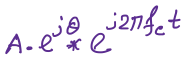 A. e^{jθ} * e^{j2πf_c t}